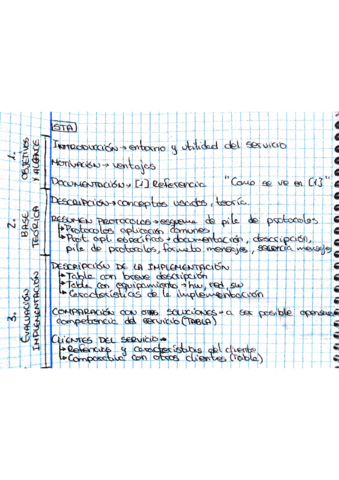 STA
1. OBJETIVOS Y ALCANCE
INTRODUCCIÓN → entorno y utilidad del servicio
MOTIVACIÓN → ventajas
DOCUMENTACIÓN → [1] Referencia "Como se ve en [1]"
2. BASE TEÓRICA
DESCRIPCIÓN → conceptos usados, teoría.
RESUMEN PROTOCOLOS → esquema de pila de protocolos
↳ Protocolos aplicación comunes
↳ Prot. apl. específicos → documentación, descripción,
pila de protocolos, formato mensajes, secuencia mensajes
3. EVALUACIÓN IMPLEMENTACIÓN
DESCRIPCIÓN DE LA IMPLEMENTACIÓN
↳ Tabla con breve descripción
↳ Tabla con equipamiento → hw, red, sw
↳ Características de la implementación
COMPARACIÓN CON OTRAS SOLUCIONES → a ser posible
competencia del servicio (TABLA)
CLIENTES DEL SERVICIO →
↳ Referencias y características del cliente
↳ Comparativa con otros clientes (Tabla)